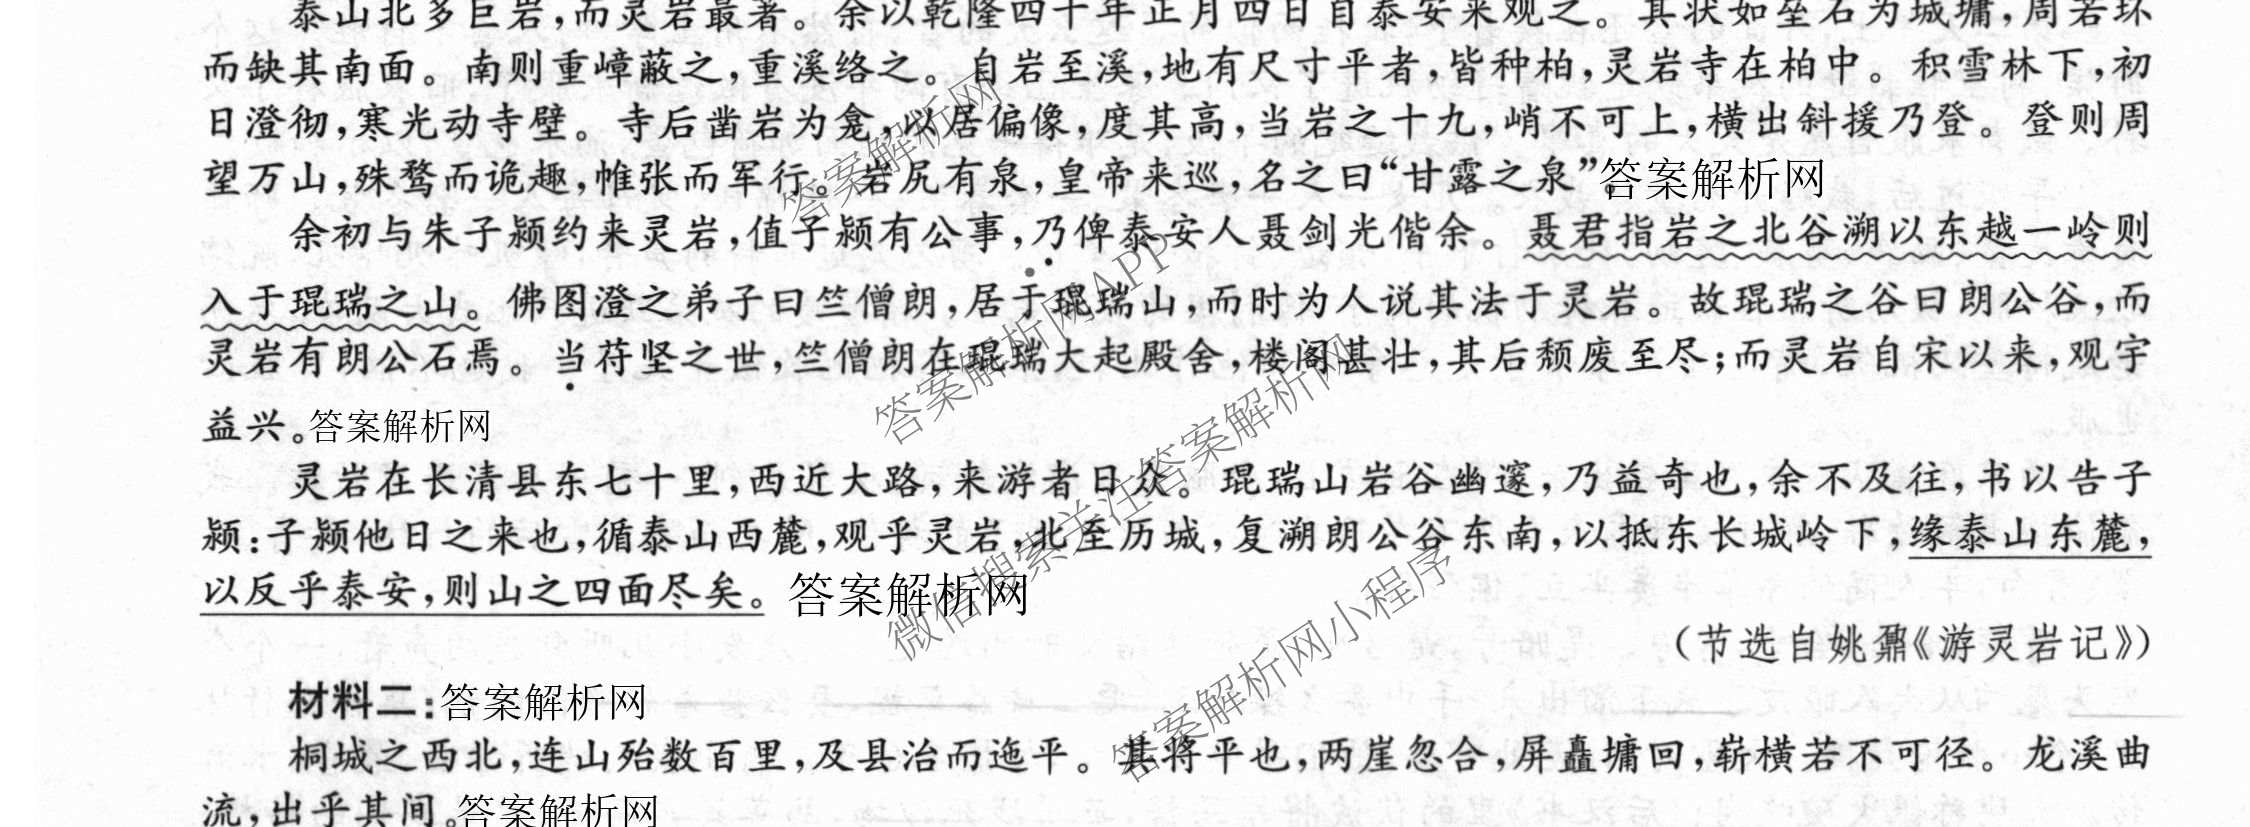 泰山北多巨岩,而灵岩最著。余以乾隆四十年正月四日自泰安来观之。其状如垒石为城墉,周若环
而缺其南面。南则重嶂蔽之,重溪络之。自岩至溪,地有尺寸平者,皆种柏,灵岩寺在柏中。积雪林下,初
日澄彻,寒光动寺壁。寺后凿岩为龛,以居偏像,度其高,当岩之十九,峭不可上,横出斜援乃登。登则周
望万山,殊骛而诡趣,帷张而军行。岩尻有泉,皇帝来巡,名之曰“甘露之泉”。答案解析网
余初与朱子颍约来灵岩,值子颍有公事,乃俾泰安人聂剑光偕余。聂君指岩之北谷溯以东越一岭则
入于琨瑞之山。佛图澄之弟子曰竺僧朗,居于琨瑞山,而时为人说其法于灵岩。故琨瑞之谷曰朗公谷,而
灵岩有朗公石焉。当苻坚之世,竺僧朗在琨瑞大起殿舍,楼阁甚壮,其后颓废至尽;而灵岩自宋以来,观宇
益兴。答案解析网
灵岩在长清县东七十里,西近大路,来游者日众。琨瑞山岩谷幽邃,乃益奇也,余不及往,书以告子
颍:子颍他日之来也,循泰山西麓,观乎灵岩,北至历城,复溯朗公谷东南,以抵东长城岭下,缘泰山东麓,
以反乎泰安,则山之四面尽矣。答案解析网
(节选自姚鼐《游灵岩记》)
材料二:答案解析网
桐城之西北,连山殆数百里,及县治而迤平。其将平也,两崖忽合,屏矗墉回,崭横若不可径。龙溪曲
流,出乎其间。答案解析网
答案解析网
答案解析网APP
微信搜索关注答案解析网
答案解析网小程序